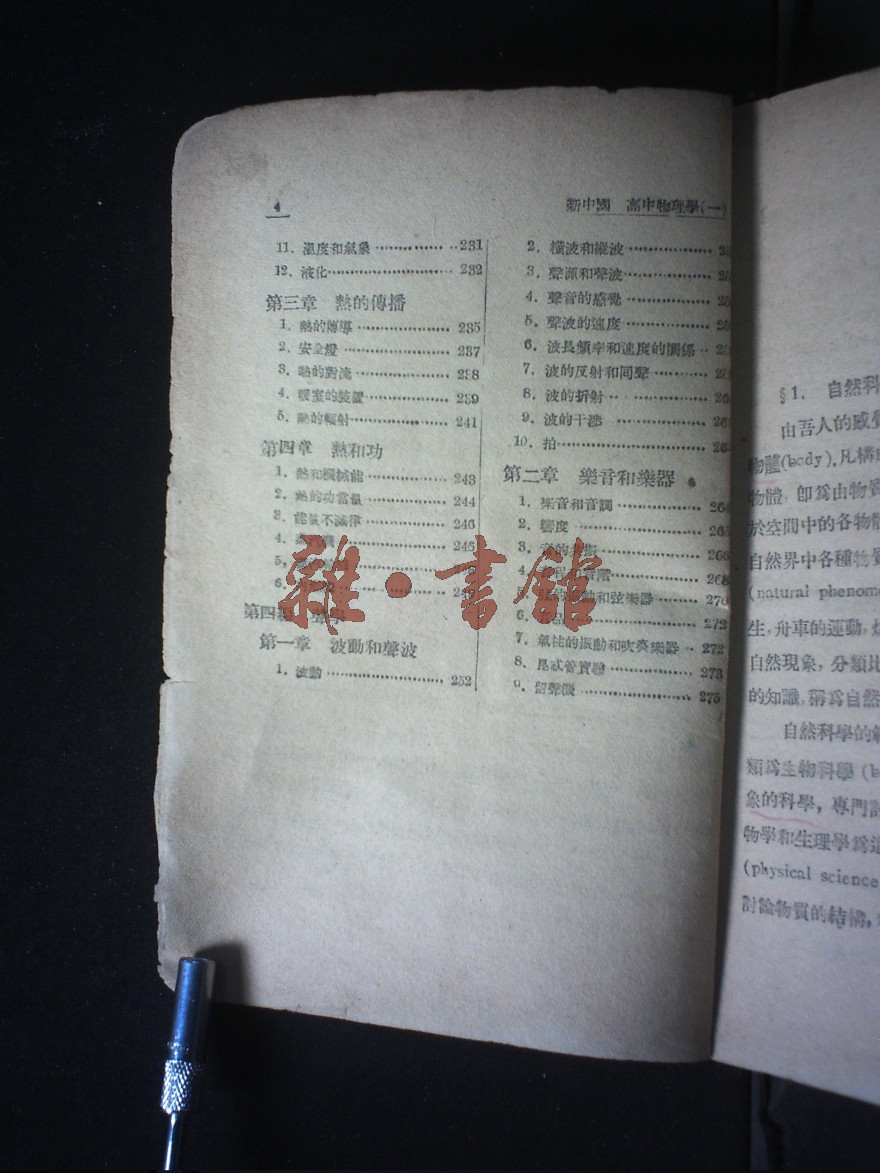 4
新中國 高中物理學(一)
11. 溫度和氣象 231
12. 液化 232
第三章 熱的傳播
1. 熱的傳導 235
2. 安全燈 237
3. 熱的對流 238
4. 暖室的裝置 239
5. 熱的輻射 241
第四章 熱和功
1. 熱和機械能 243
2. 熱的功當量 244
3. 能量不滅律 246
4.
5.
6.
第四編
第一章 波動和聲波
1. 波動 252
2. 橫波和縱波
3. 聲源和聲波
4. 聲音的感覺
5. 聲波的速度
6. 波長頻率和速度的關係
7. 波的反射和回聲
8. 波的折射
9. 波的干涉
10. 拍
第二章 樂音和樂器
1. 樂音和音調
2. 響度
3. 266
4. 268
和弦樂器 270
6. 272
7. 氣柱的振動和吹奏樂器 272
8. 昆忒管實驗 273
9. 留聲機 275
雜·書館
§1. 自然科
由吾人的感覺
物體(body),凡構成
物體,即爲由物質
於空間中的各物體
自然界中各種物質
(natural phenome
生,舟車的運動,
自然現象,分類比
的知識,稱爲自然
自然科學的
類爲生物科學 (b
象的科學,專門討
物學和生理學爲
(physical science
討論物質的結構,